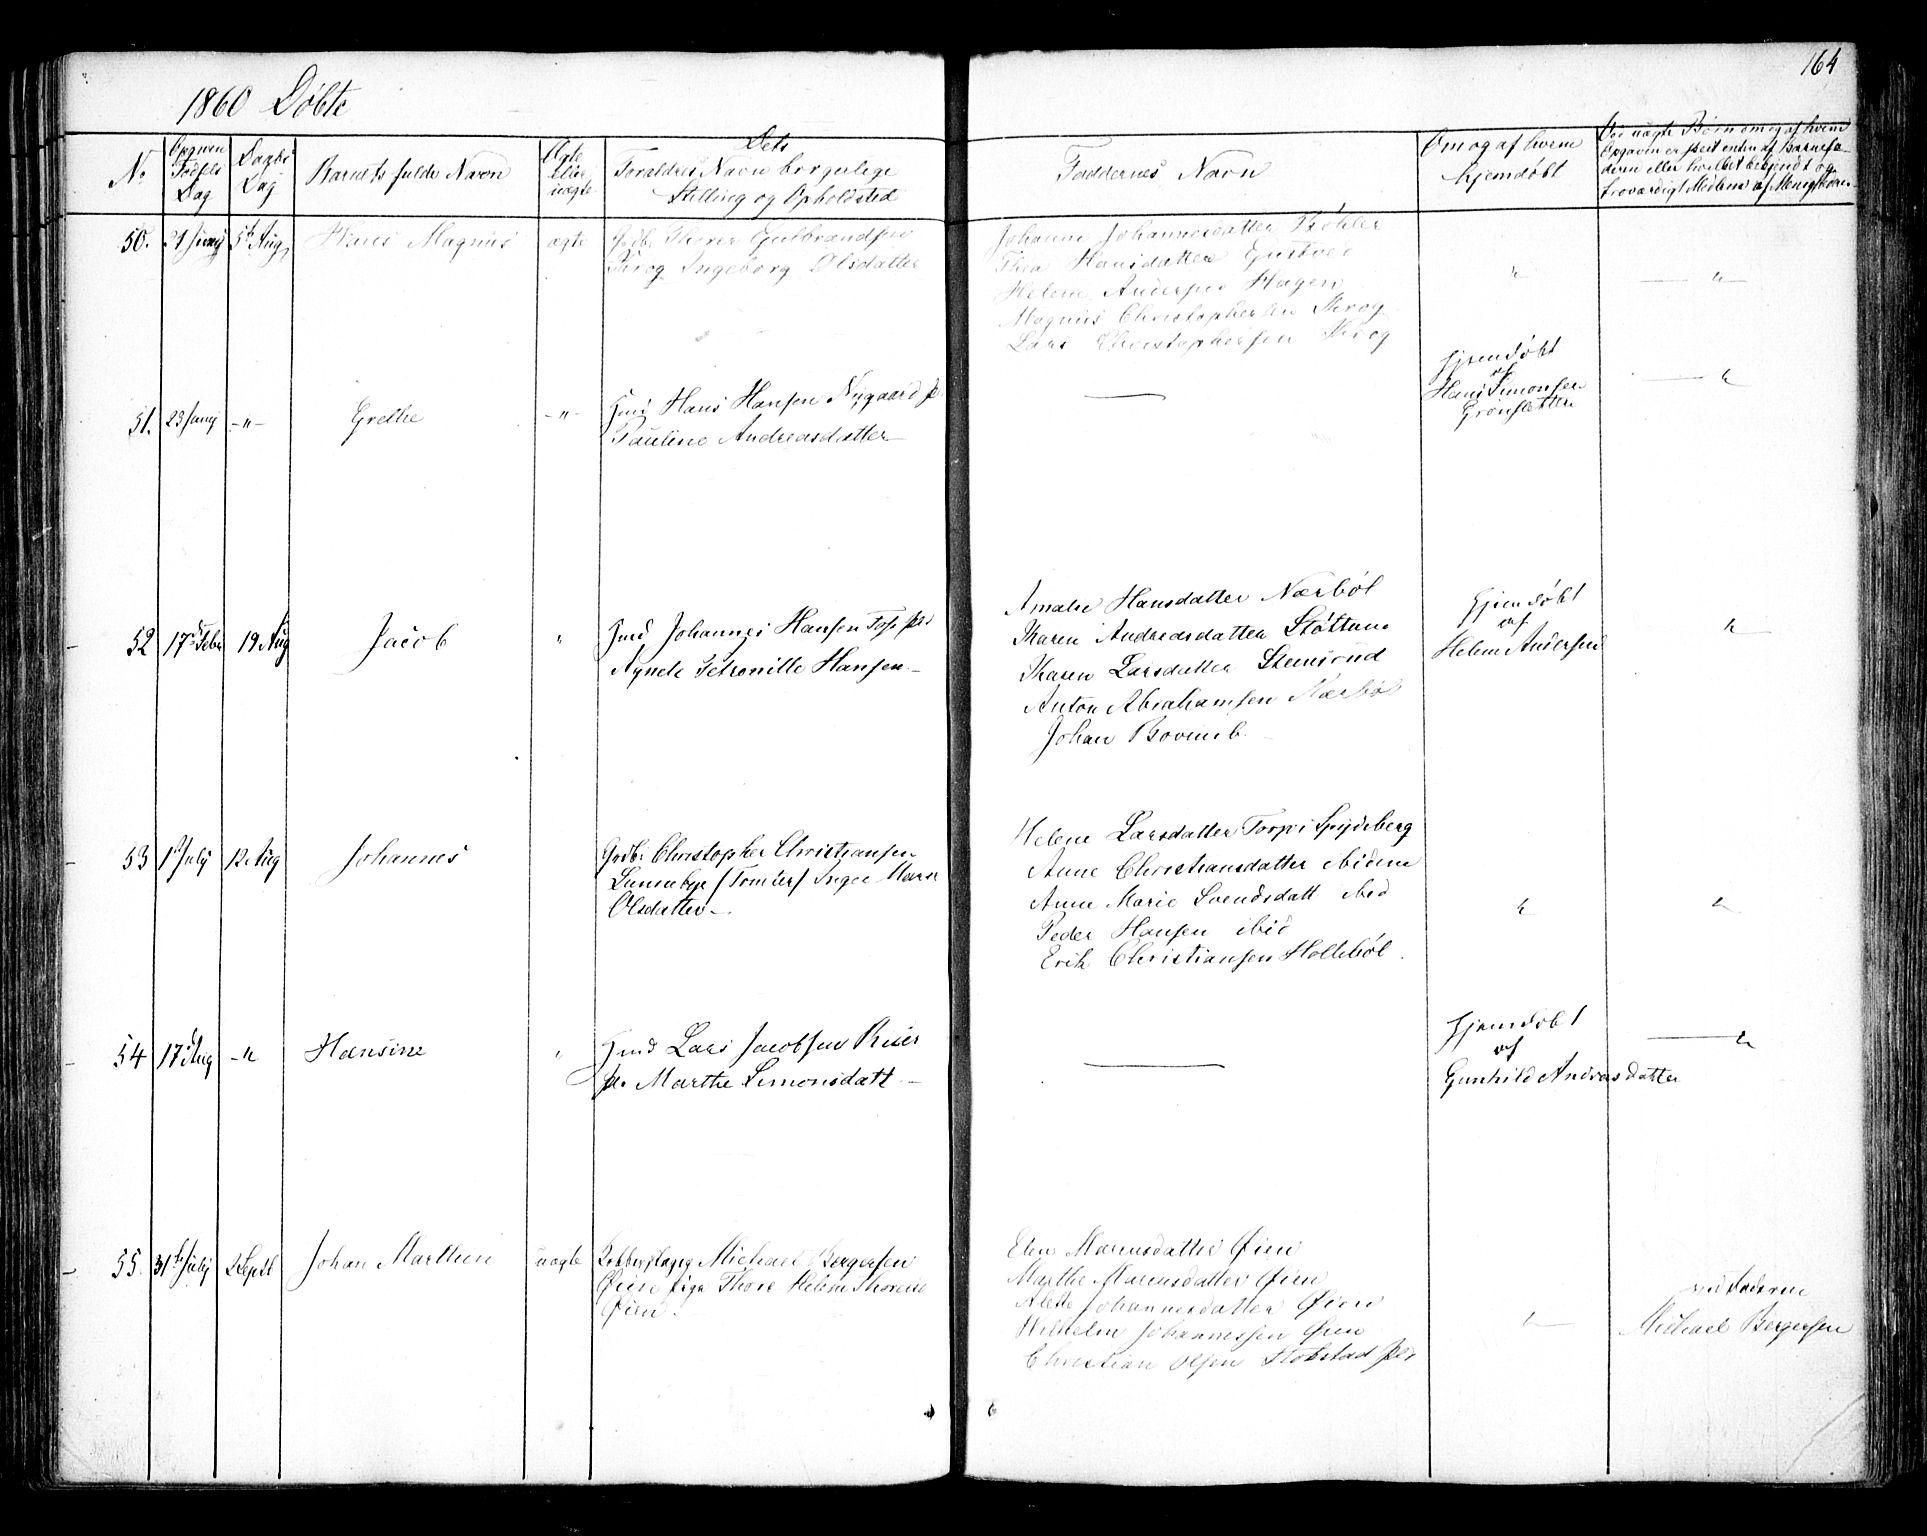 164
1860 Døbte
No
Opgiven Fødsels Dag
Daabs Dag
Barnets fulde Navn
Ægte eller uægte
Dets Forældres Navn borgerlige Stilling og Opholdsted
Faddernes Navn
Om og af hvem hjemdøbt
Ved uægte Børn om og af hvem
Opgaven er skeet enten af Barnefa-
deren eller hvilket bekjendt og
troværdigt Medlem af Menigheden
50. 21 Juny 5te Aug Hans Magnus ægte Gdb. Thorer Gulbrandsen
Krog Ingeborg Olsdatter
Johanne Johannesdatter Køhler
Thea Hansdatter
Helene Andersen Hagen
Magnus Christophersen Krog
Lars Christophersen Krog
51. 23 Juny -"- Grethe -"- Huus Hans Hansen Nygaard
Pauline Andreasdatter
Hjemdøbt
af
Hans Simonsen
Grønsletten
52 17de Febr 19 Aug Jacob " Huus Johannes Hansen
Agnete Petronille Hansen
Amalie Hansdatter Nærbøl
Karen Andreasdatter Støttum
Karen Larsdatter Stensrud
Anton Abrahamsen Nærbøl
Johan Bovim b.
Hjemdøbt
af
Helene Andersen
53 1 July 12 Aug Johannes
Grdb: Christopher Christiansen
Lunnebye /Tomter/ Inger Marie
Olsdatter
Helene Larsdatter Torp i Spydeberg
Anne Christiansdatter ibidem
Anne Marie Svendsdatt ibid
Peder Hansen ibid
Erik Christiansen Hollebøl.
54 17de Aug -"- Hansine " Huus Lars Jacobsen Riser
Marthe Simonsdatt
Hjemdøbt
af
Gunhild Andreasdatter
55. 31te July 2 Septb Johan Marthin uægte Michael Bergersen
Øien pige Thore Helene Thorene
Øien.
Elen Marcusdatter Øien
Marthe Marcusdatter Øien
Alette Johannesdatter Øien
Wilhelm Johannessen Øien
Christian Olsen Slobstad
ved Faderen
Michael Bergersen